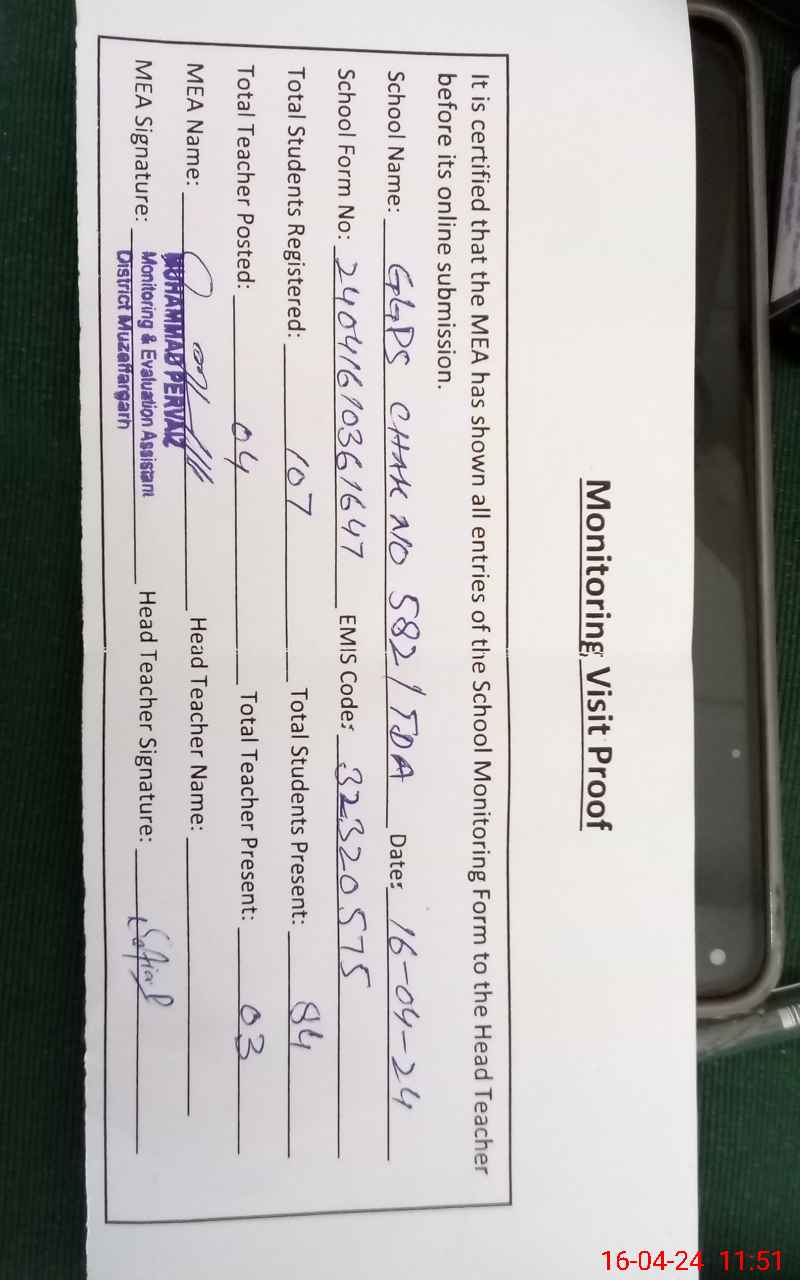 Monitoring Visit Proof
It is certified that the MEA has shown all entries of the School Monitoring Form to the Head Teacher
before its online submission.
School Name: GGPS CHAK NO 582 / TDA Date: 16-04-24
School Form No: 24041610361647 EMIS Code: 32320575
Total Students Registered: 107 Total Students Present: 84
Total Teacher Posted: 04 Total Teacher Present: 03
MEA Name: Head Teacher Name:
MUHAMMAD PERVAIZ
MEA Signature: Head Teacher Signature:
Monitoring & Evaluation Assistant
District Muzaffargarh
16-04-24 11:51